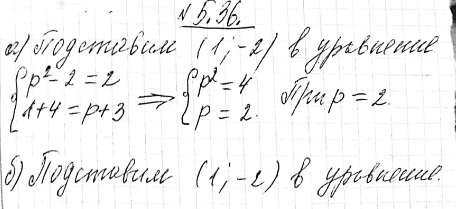 № 5.36.
а) Подставим (1; -2) в уравнение
{p² - 2 = 2
{1 + 4 = p + 3 ⟹ {p² = 4
{p = 2. При p = 2.
б) Подставим (1; -2) в уравнение.